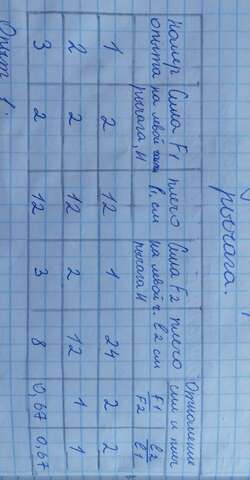 рычага.
Номер опыта Сила F1 на левой части рычага, Н плечо l1 см Сила F2 на левой ч. рычага Н плечо l2 см Отношение сил и плеч F1/F2 l2/l1
1 2 12 1 24 2 2
2 2 12 2 12 1 1
3 2 12 3 8 0,67 0,67
Опыт 1.